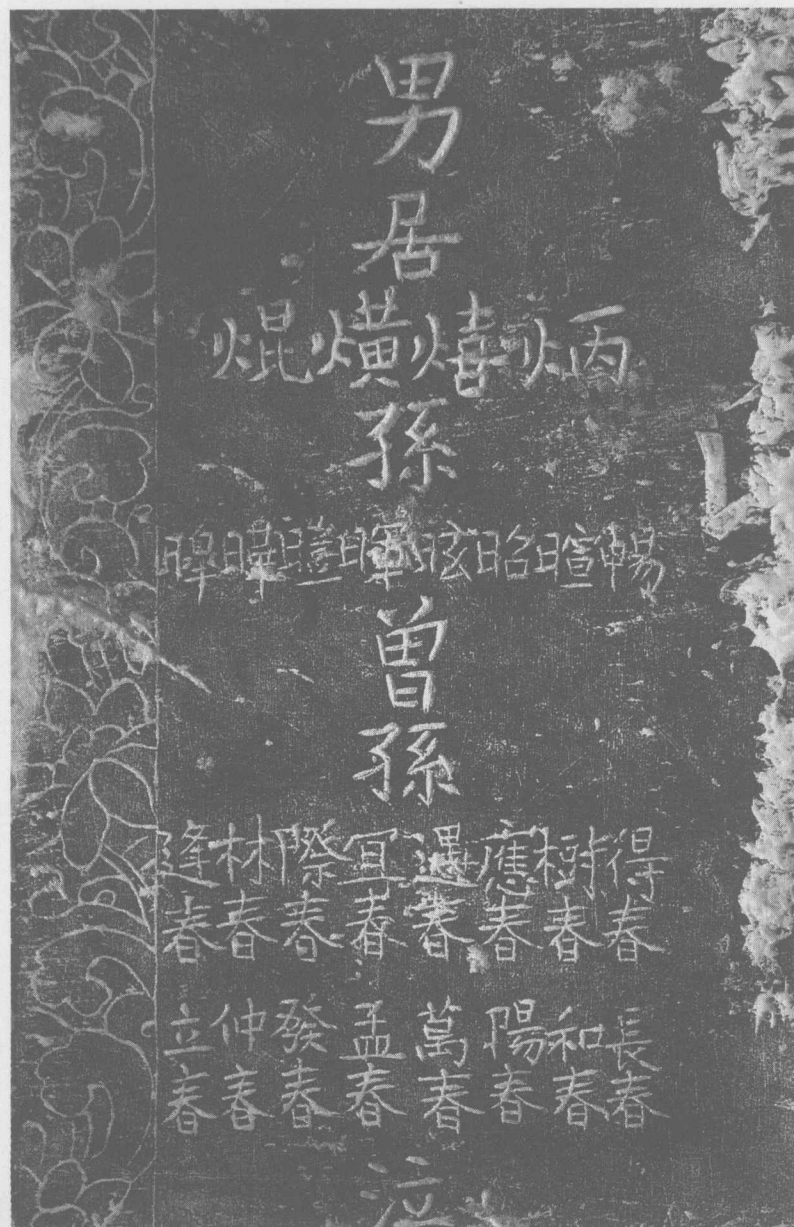 男
居
炳熺熿焜
孫
暢暄昭昡暉曄
曾
孫
得春
樹春
應春
遇春
宜春
際春
林春
逢春
長春
和春
陽春
萬春
孟春
發春
仲春
立春
泣